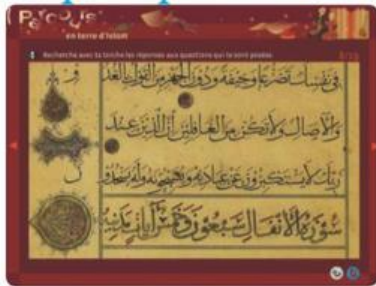 Parcours
en terre d'Islam
Recherche avec ta torche les réponses aux questions qui te sont posées.
في نفسك تضرعا وخيفة ودون الجهر من القول بالغد
والآصال ولا تكن من الغافلين ان الذين عند
ربك لا يستكبرون عن عبادته ويسبحونه وله يسجدو
سورة الانفال سبعون وخمس آيات مدنية